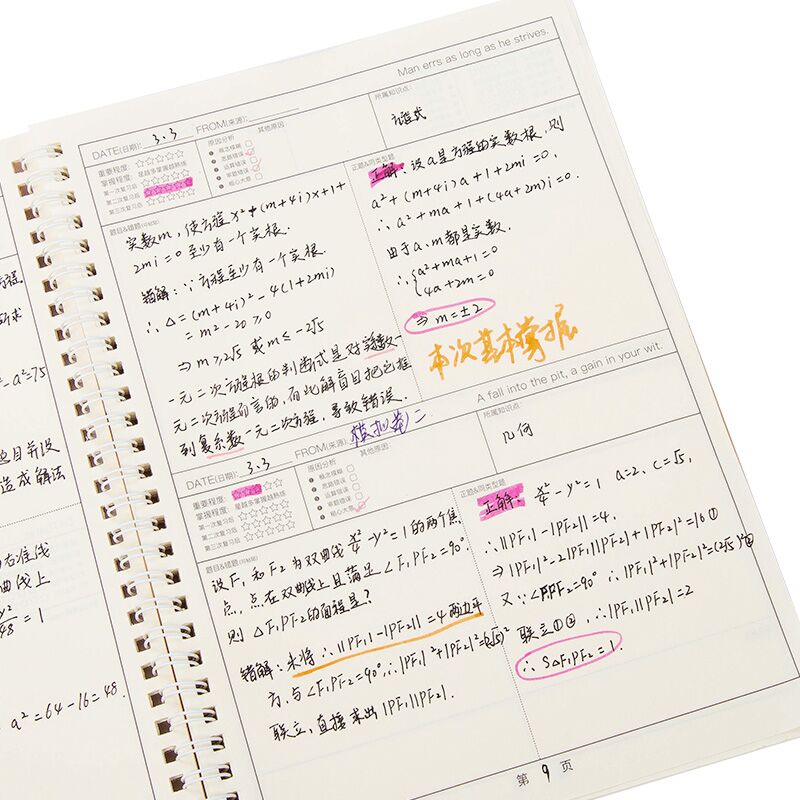 Man errs as long as he strives.
DATE(日期): 3.3 FROM(来源):
所属知识点:
方程式
重要程度: ☆☆☆☆☆
掌握程度: 星越多掌握越熟练
第一次复习后 ☆☆☆☆☆
第二次复习后 ☆☆☆☆☆
第三次复习后 ☆☆☆☆☆
原因分析
概念模糊
思路错误
运算错误
审题错误
粗心大意
其他原因
题目&错题(可粘贴)
实数m,使方程x²+(m+4i)x+1+
2mi=0至少有一个实根.
错解:∵方程至少有一个实根.
∴△=(m+4i)²-4(1+2mi)
=m²-20≥0
⇒m≥2√5 或m≤-2√5
一元二次方程根的判断式是对实系数一
元二次方程而言的,而此解盲目把它框
到复系数一元二次方程,导致错误.
正解&同类型题
正解:设a是方程的实数根,则
a²+(m+4i)a+1+2mi=0,
∴a²+ma+1+(4a+2m)i=0.
由于a.m都是实数.
∴{a²+ma+1=0
{4a+2m=0
⇒m=±2
本次基本掌握
A fall into the pit, a gain in your wit.
DATE(日期): 3.3 FROM(来源): 模拟卷二
所属知识点:
几何
重要程度: ☆☆☆☆☆
掌握程度: 星越多掌握越熟练
第一次复习后 ☆☆☆☆☆
第二次复习后 ☆☆☆☆☆
第三次复习后 ☆☆☆☆☆
原因分析
概念模糊
思路错误
运算错误
审题错误
粗心大意
其他原因:
题目&错题(可粘贴)
设F₁和F₂为双曲线x²/4-y²=1的两个焦
点,点在双曲线上且满足∠F₁PF₂=90°.
则△F₁PF₂的面程是?
错解:未将∴||PF₁|-|PF₂||=4两边平
方,与∠F₁PF₂=90°∴|PF₁|²+|PF₂|²=(2√5)²
联立,直接求出|PF₁||PF₂|.
正解&同类型题
正解:x²/4-y²=1 a=2, c=√5,
∴||PF₁|-|PF₂||=4.
⇒|PF₁|²-2|PF₁||PF₂|+|PF₂|²=16①
又∵∠F₁PF₂=90° ∴|PF₁|²+|PF₂|²=(2√5)²②
联立①②,∴|PF₁||PF₂|=2
∴S△F₁PF₂=1.
第 9 页
方程
所求
a²=75
造成解法
右准线
曲线上
48 = 1
a²=64-16=48.